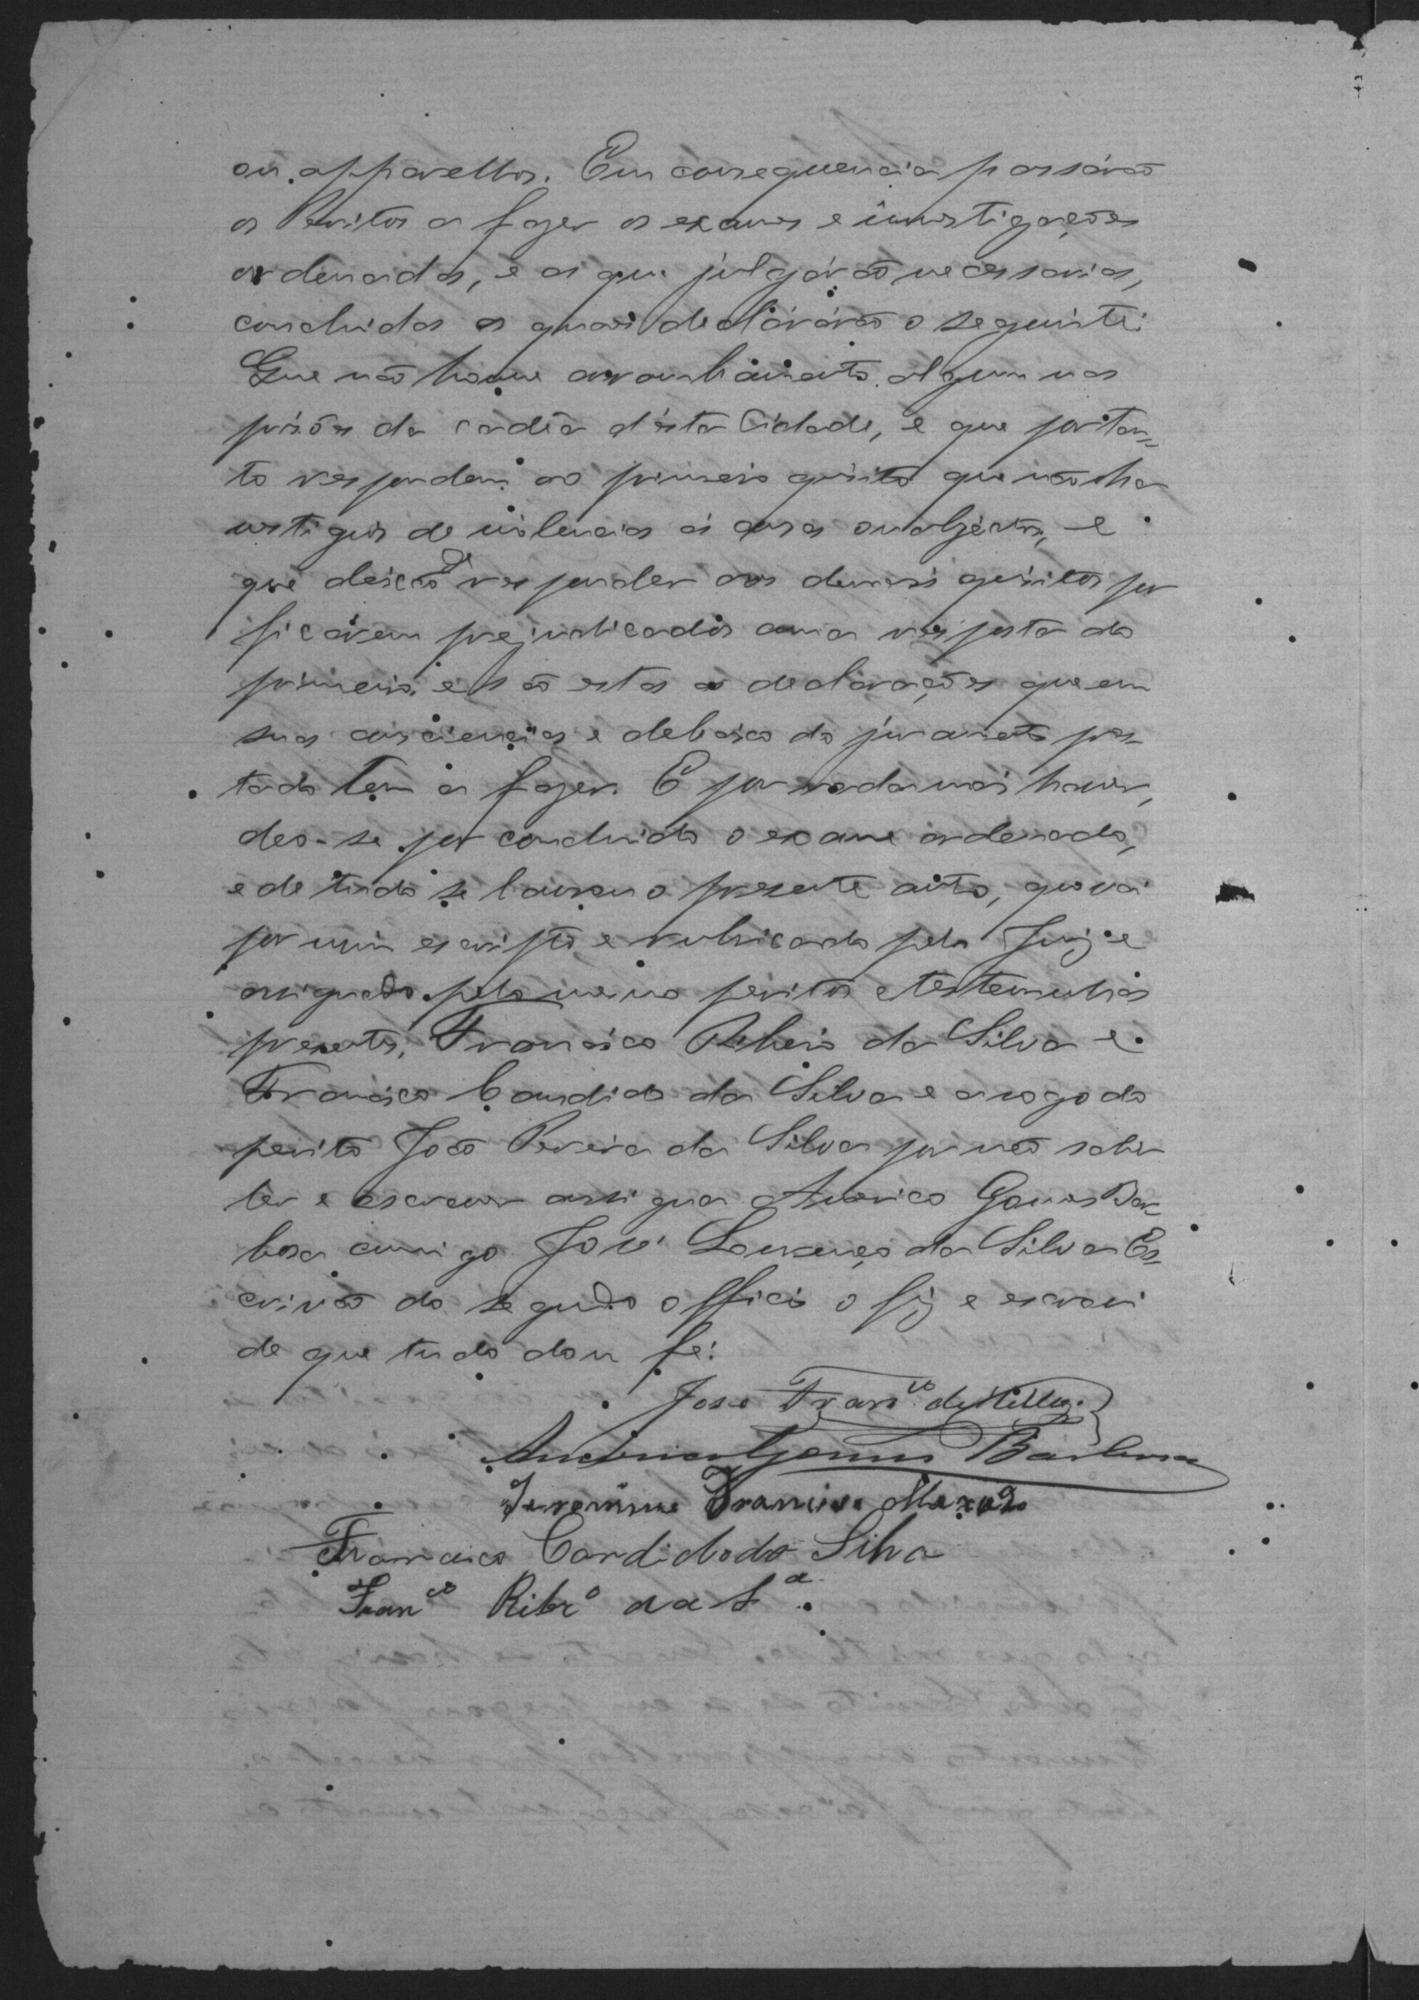 ou apparelhos. Em consequencia passárão
os Peritos a fazer os exames e investigações
ordenadas, e as que julgárão necessarias,
concluidas as quaes declarárão o seguinte:
Que não houve arrombamento algum nas
prisões da cadêa d'ésta Cidade, e que portan-
to respondem ao primeiro quisito que não ha
vestigios de violencias ás cousas ou objectos, e
que deixão de responder aos demais quisitos por
ficárem prejudicados com a resposta do
primeiro, e são estas as declarações que em
suas consciencias e debaixo do juramento pres-
tado tem a fazer. E por nada mais haver,
deo-se por concluido o exame ordenado,
e de tudo se lavrou o presente auto, que vai
por mim escripto e rubricado pelo Juiz e
assignado pelo mesmo peritos e testemunhas
presentes, Francisco Ribeiro da Silva e
Francisco Candido da Silva e a rogo do
perito João Pereira da Silva por não saber
ler e escrever assigna Americo Gomes Bar-
bosa comigo José Lourenço da Silva Es-
crivão do segundo officio o fiz e escrevi
de que tudo dou fé.
José Fran.co de
Americo Gomes Barbosa
Jeronimo Francisco
Francisco Candido da Silva
Fran.co Ribr.o da S.a